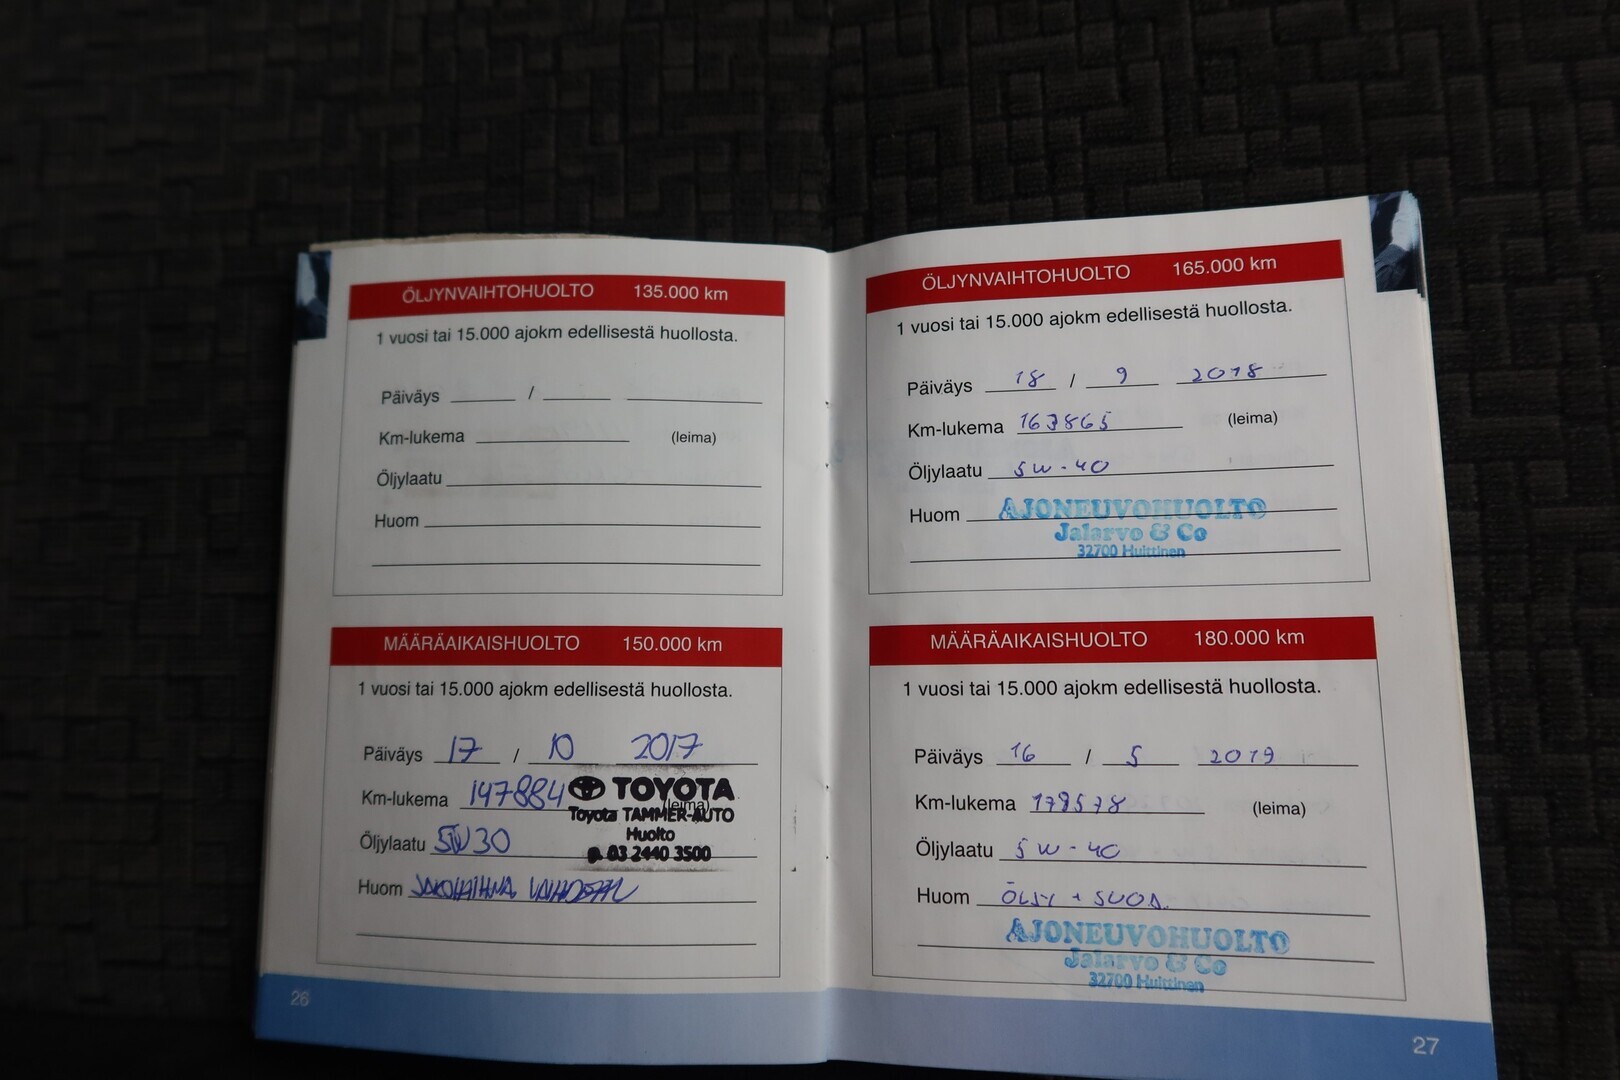 ÖLJYNVAIHTOHUOLTO 135.000 km
1 vuosi tai 15.000 ajokm edellisestä huollosta.
Päiväys /
Km-lukema (leima)
Öljylaatu
Huom
MÄÄRÄAIKAISHUOLTO 150.000 km
1 vuosi tai 15.000 ajokm edellisestä huollosta.
Päiväys 17 / 10 2017
Km-lukema 147884 (leima)
TOYOTA
Toyota TAMMER-AUTO
Huolto
p. 03 2440 3500
Öljylaatu 5W30
Huom JAKOHIHNA
26
ÖLJYNVAIHTOHUOLTO 165.000 km
1 vuosi tai 15.000 ajokm edellisestä huollosta.
Päiväys 18 / 9 2018
Km-lukema 163865 (leima)
Öljylaatu 5W-40
Huom
AJONEUVOHUOLTO
Jalarvo & Co
32700 Huittinen
MÄÄRÄAIKAISHUOLTO 180.000 km
1 vuosi tai 15.000 ajokm edellisestä huollosta.
Päiväys 16 / 5 2019
Km-lukema 178578 (leima)
Öljylaatu 5W-40
Huom ÖLJY + SUOD.
AJONEUVOHUOLTO
Jalarvo & Co
32700 Huittinen
27